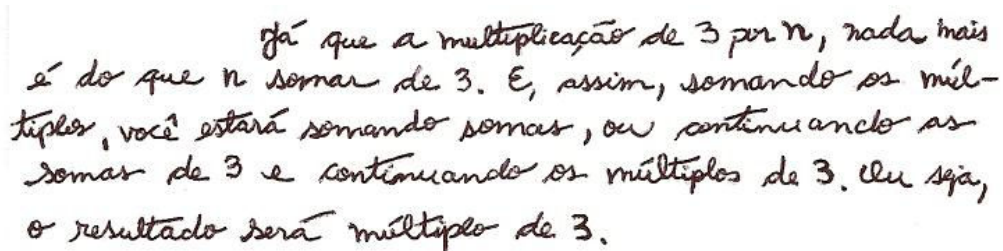 Já que a multiplicação de 3 por n, nada mais
é do que n somas de 3. E, assim, somando os múl-
tiplos, você estará somando somas, ou continuando as
somas de 3 e continuando os múltiplos de 3. Ou seja,
o resultado será múltiplo de 3.